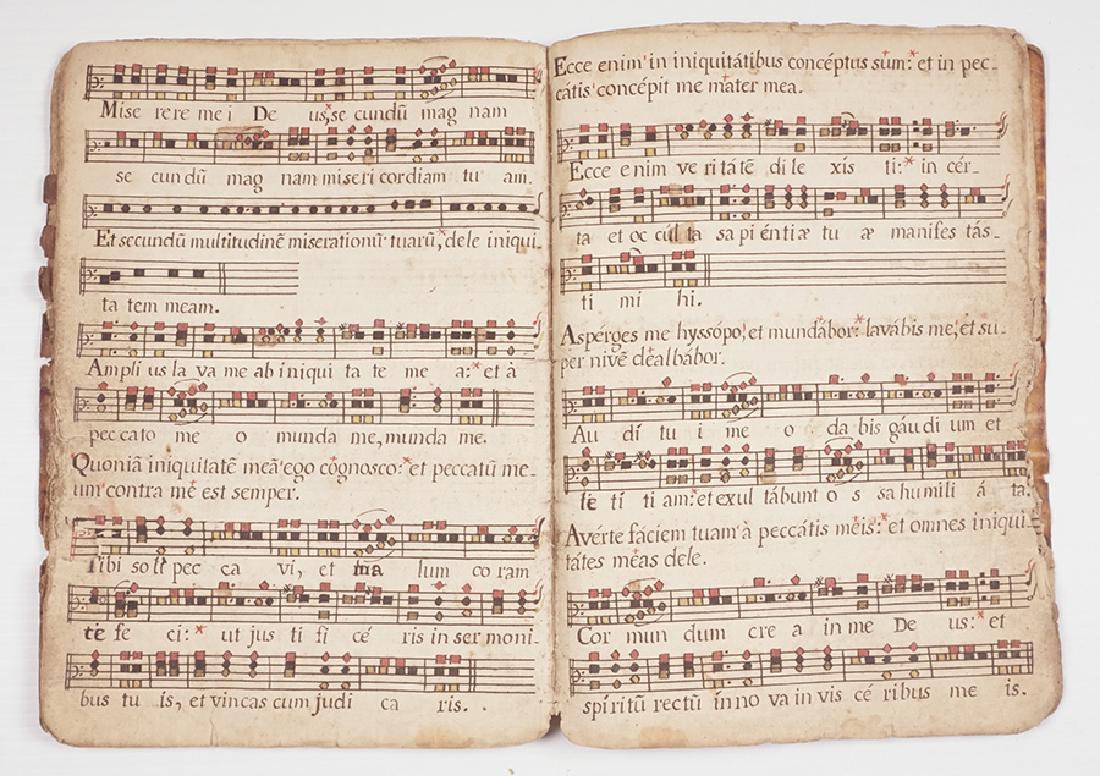 Mise re re me i De us,* se cundū mag nam
se cun dū mag nam mise ri cordiam tu am.
Et secundū multitudinē miserationū tuarū,* dele iniqui-
ta tem meam.
Ampli us la va me ab iniqui ta te me a:* et à
peccato me o munda me, munda me.
Quoniā iniquitatē meā ego cognosco:* et peccatū me-
um contra me est semper.
Tibi soli pec ca vi, et ma lum co ram
te fe ci:* ut jus ti fi cé ris in ser moni-
bus tu is, et vincas cum judi ca ris.
Ecce enim in iniquitátibus concéptus sum:* et in pec-
cátis concépit me mater mea.
Ecce enim ve ri tá tē di le xis ti:* in cér-
ta et oc cúl ta sa pi éntiæ tu æ manifes tás-
ti mi hi.
Aspérges me hyssópo, et mundábor:* lavábis me, et su-
per nivē dealbábor.
Au dí tu i me o da bis gáu di um et
le tí ti am:* et exul tábunt o s sa humili á ta.
Avérte fáciem tuam à peccátis méis:* et omnes iniqui-
tátes méas dele.
Cor mun dum cre a in me De us:* et
spíritū rectū in no va in vis cé ribus me is.